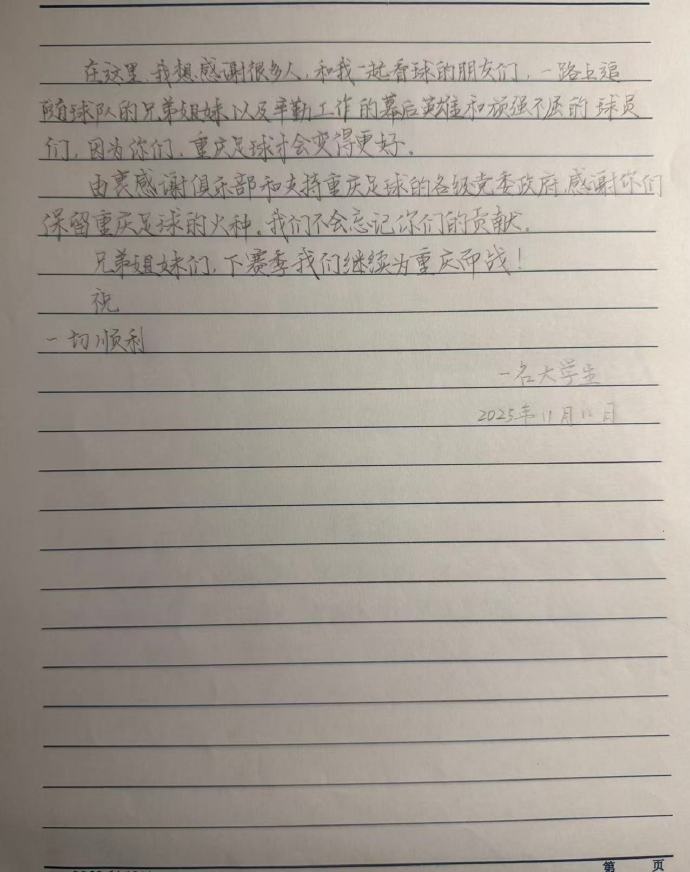 在这里,我想感谢很多人,和我一起看球的朋友们,一路上追
随球队的兄弟姐妹以及辛勤工作的幕后英雄和顽强不屈的球员
们,因为你们,重庆足球才会变得更好。
由衷感谢俱乐部和支持重庆足球的各级党委政府,感谢你们
保留重庆足球的火种。我们不会忘记你们的贡献。
兄弟姐妹们,下赛季我们继续为重庆而战!
祝
一切顺利
一名大学生
2025年11月12日
第 页